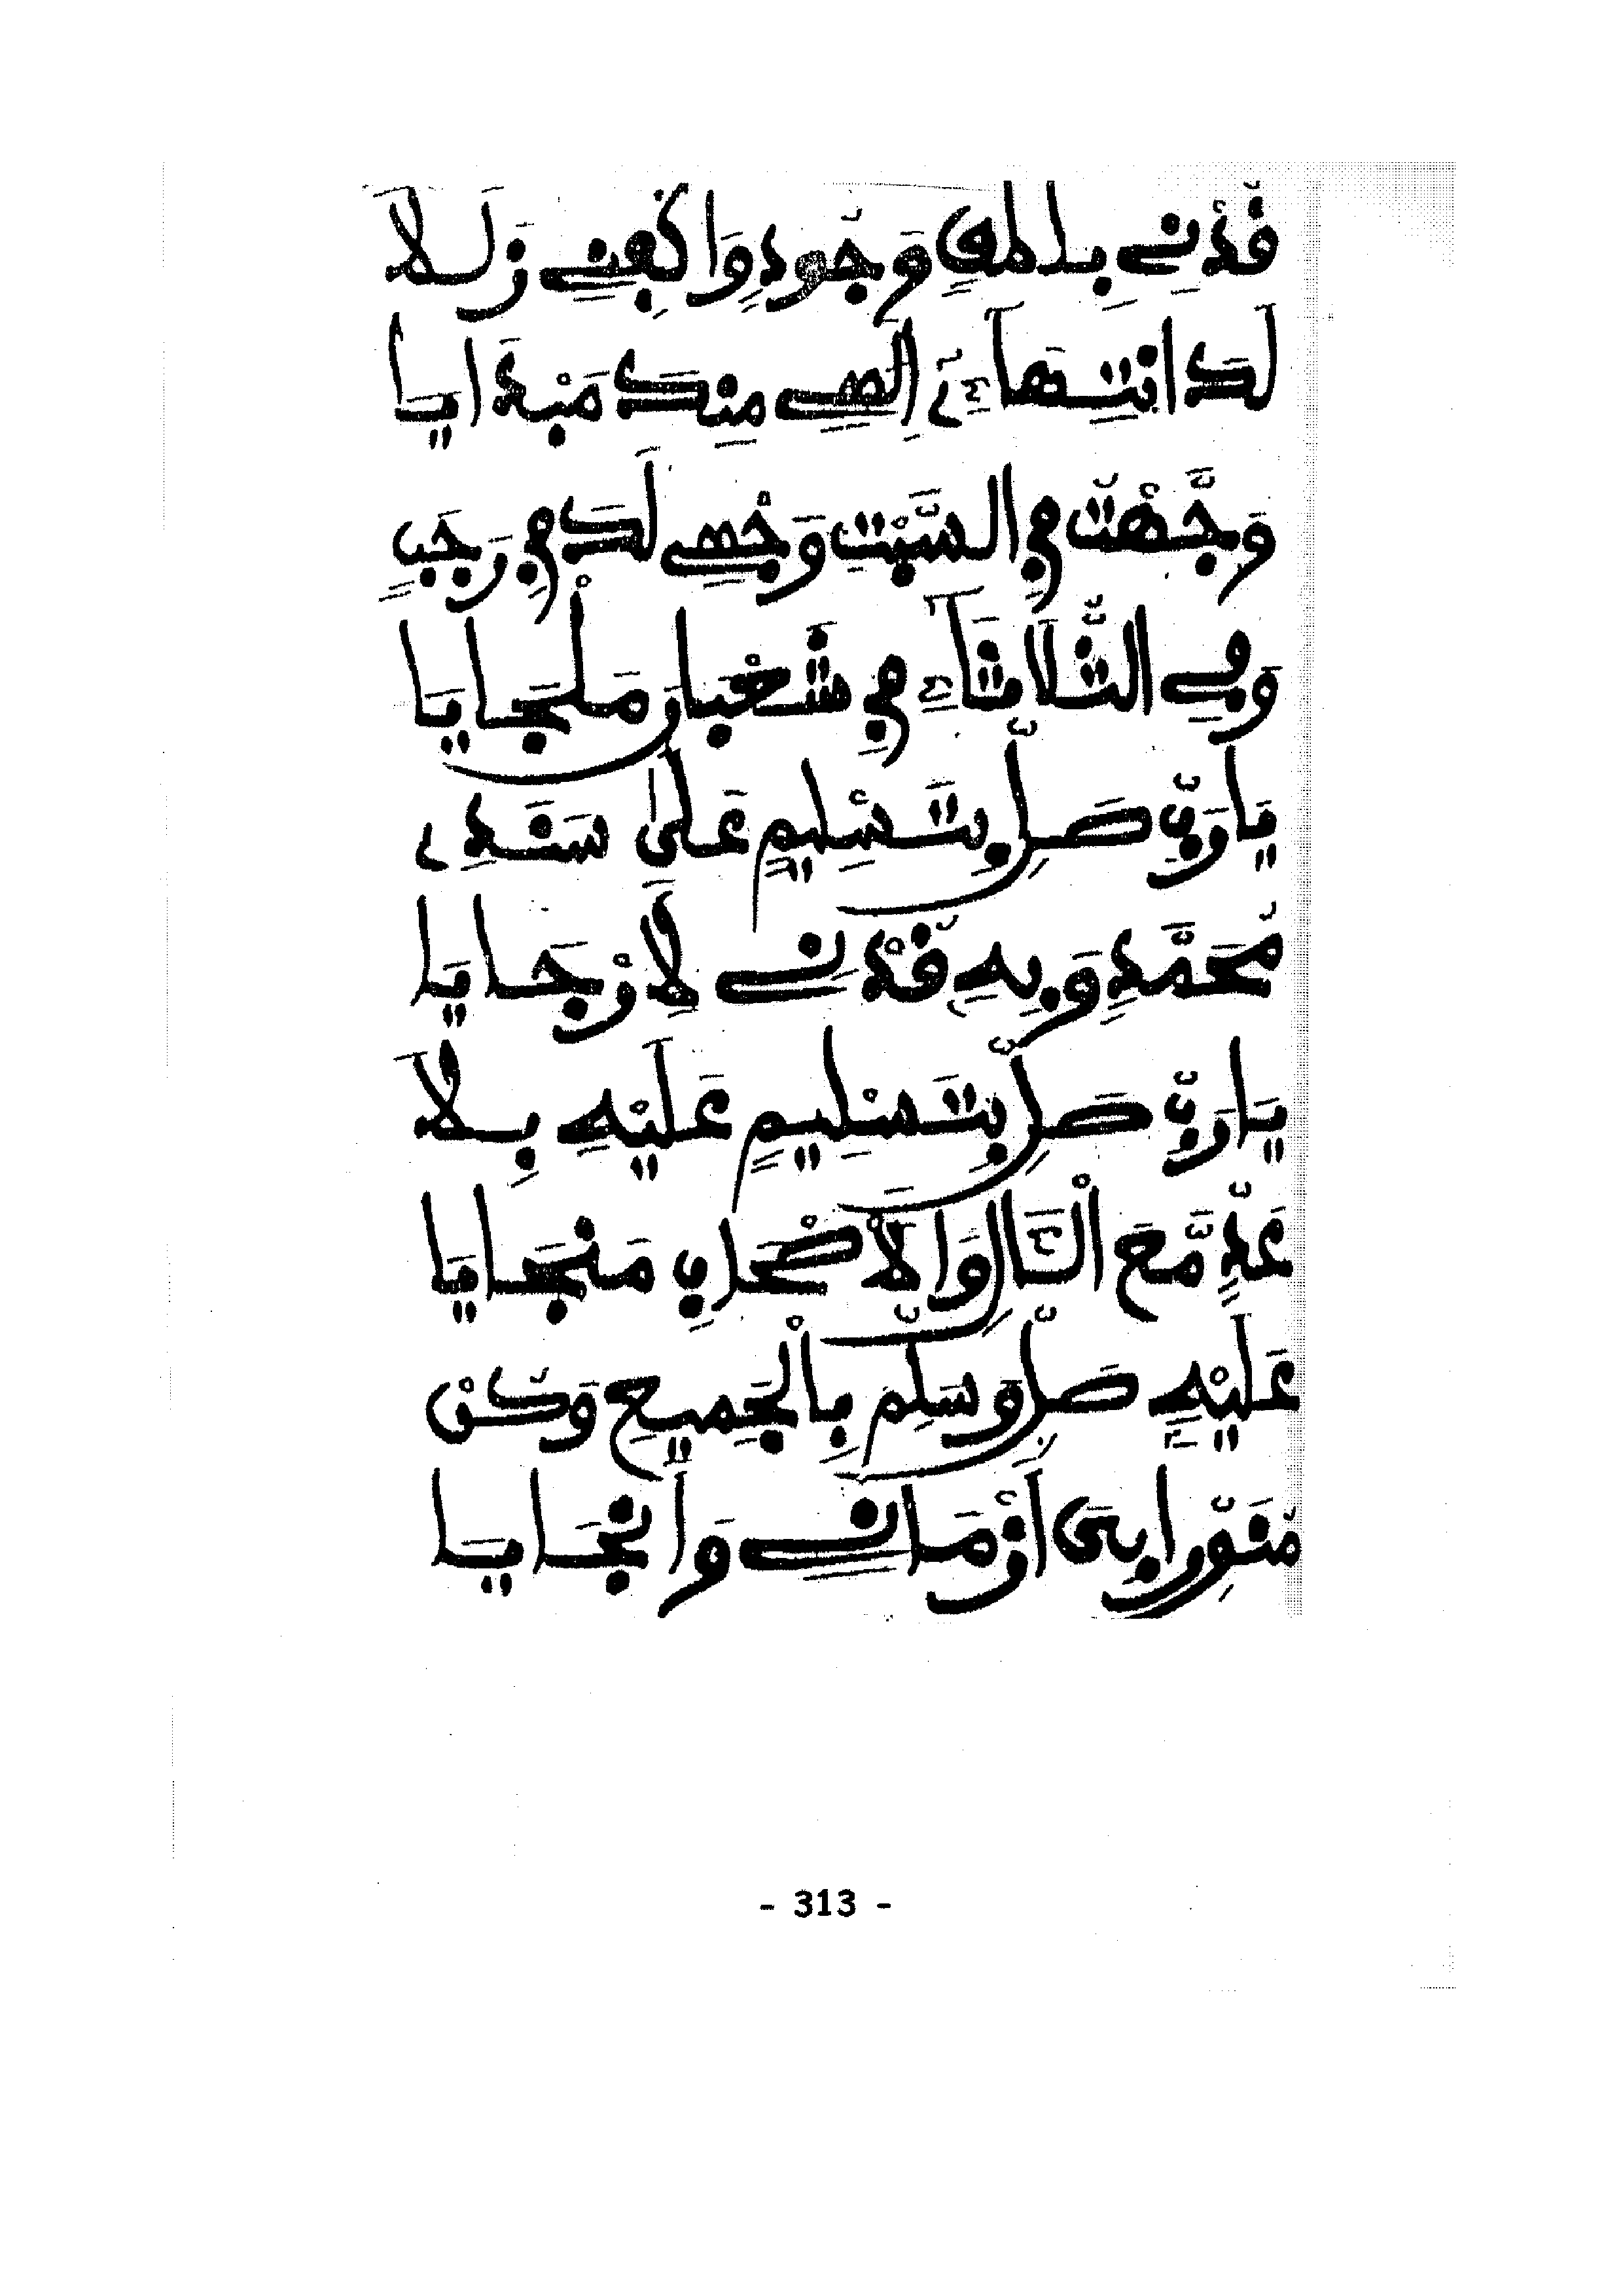 قُدْنِي بِلَا لَمَقٍ وَجُّودِ وَاكْفِنِي زَلَلَا
لَكَ انْتِهَاءِي إِلَهِي مِنْكَ مَبْدَايَا
وَجَّهْتُ فِي السَّبْتِ وَجْهِي لَكَ فِي رَجَبٍ
وَفِي الثُّلَاثَاءِ فِي شَخْبَارَ مَلْجَايَا
يَارَبِّ صَلِّ بِتَسْلِيمٍ عَلَى سَنَدِي
مُحَمَّدٍ وَبِهِ قُدْنِي لِأَوْجَايَا
يَارَبِّ صَلِّ بِتَسْلِيمٍ عَلَيْهِ بِلَا
عَدٍّ مَّعَ الْآلِ وَالْأَصْحَابِ مَنْجَايَا
عَلَيْهِ صَلِّ وَسَلِّمْ بِالْجَمِيعِ وَكُنْ
مُنَوِّرًا بِيَ أَزْمَانِي وَأَنْجَايَا
- 313 -